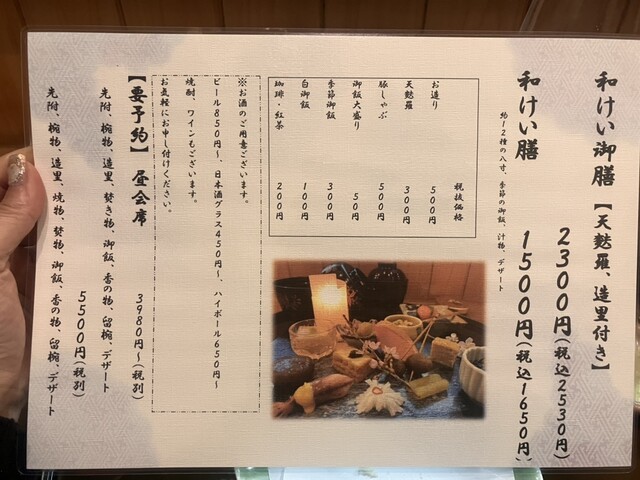 和けい御膳【天麩羅、造里付き】
2300円(税込2530円)
和けい膳 1500円(税込1650円)
約12種の八寸、季節の御飯、汁物、デザート
税抜価格
お造り 500円
天麩羅 300円
豚しゃぶ 500円
御飯大盛り 50円
季節御飯 300円
白御飯 100円
珈琲・紅茶 200円
※お酒のご用意ございます。
ビール850円〜、日本酒グラス450円〜、ハイボール650円〜
焼酎、ワインもございます。
お気軽にお申し付けください。
【要予約】昼会席
3980円〜(税別)
先附、椀物、造里、焚き物、御飯、香の物、留椀、デザート
5500円(税別)
先附、椀物、造里、焼物、焚物、御飯、香の物、留椀、デザート